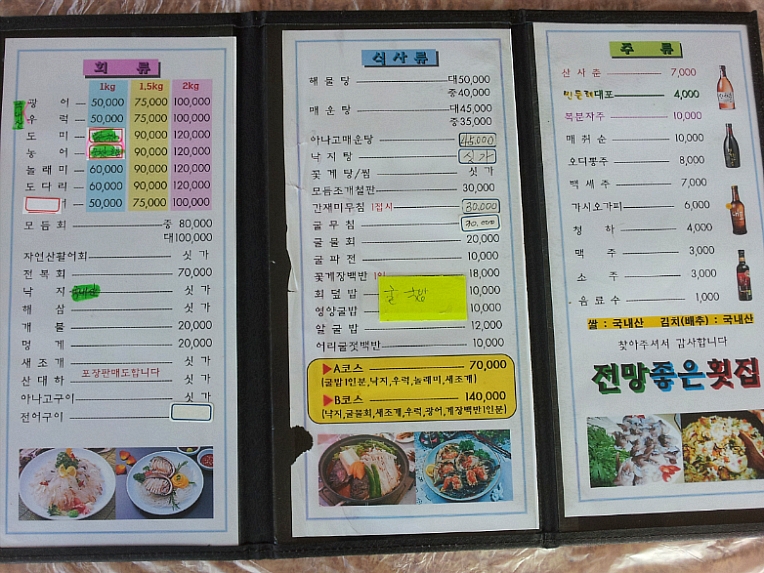 회 류
1kg 1,5kg 2kg
광 어 50,000 75,000 100,000
우 럭 50,000 75,000 100,000
도 미 90,000 120,000
농 어 90,000 120,000
놀래미 60,000 90,000 120,000
도다리 60,000 90,000 120,000
어 50,000 75,000 100,000
모듬회 중 80,000
대100,000
자연산활어회 싯 가
전복회 70,000
낙 지 싯 가
해 삼 싯 가
개 불 20,000
멍 게 20,000
새조개 싯 가
포장판매도합니다
산대하 싯 가
아나고구이 싯 가
전어구이
식사류
해물탕 대50,000
중40,000
매운탕 대45,000
중35,000
아나고매운탕 45,000
낙지탕 싯가
꽃게탕/찜 싯 가
모듬조개철판 30,000
간재미무침 1접시 30,000
굴무침 30,000
굴물회 20,000
굴파전 10,000
꽃게장백반 1인 18,000
회덮밥 10,000
굴
영양굴밥 10,000
알굴밥 12,000
어리굴젓백반 10,000
▶A코스 70,000
(굴밥1인분,낙지,우럭,놀래미,새조개)
▶B코스 140,000
(낙지,굴물회,새조개,우럭,광어,게장백반1인분)
주 류
산사춘 7,000
민들레대포 4,000
복분자주 10,000
매취순 10,000
오디뽕주 8,000
백세주 7,000
가시오가피 6,000
청 하 4,000
맥 주 3,000
소 주 3,000
음료수 1,000
쌀 : 국내산 김치(배추) : 국내산
찾아주셔서 감사합니다
전망좋은횟집